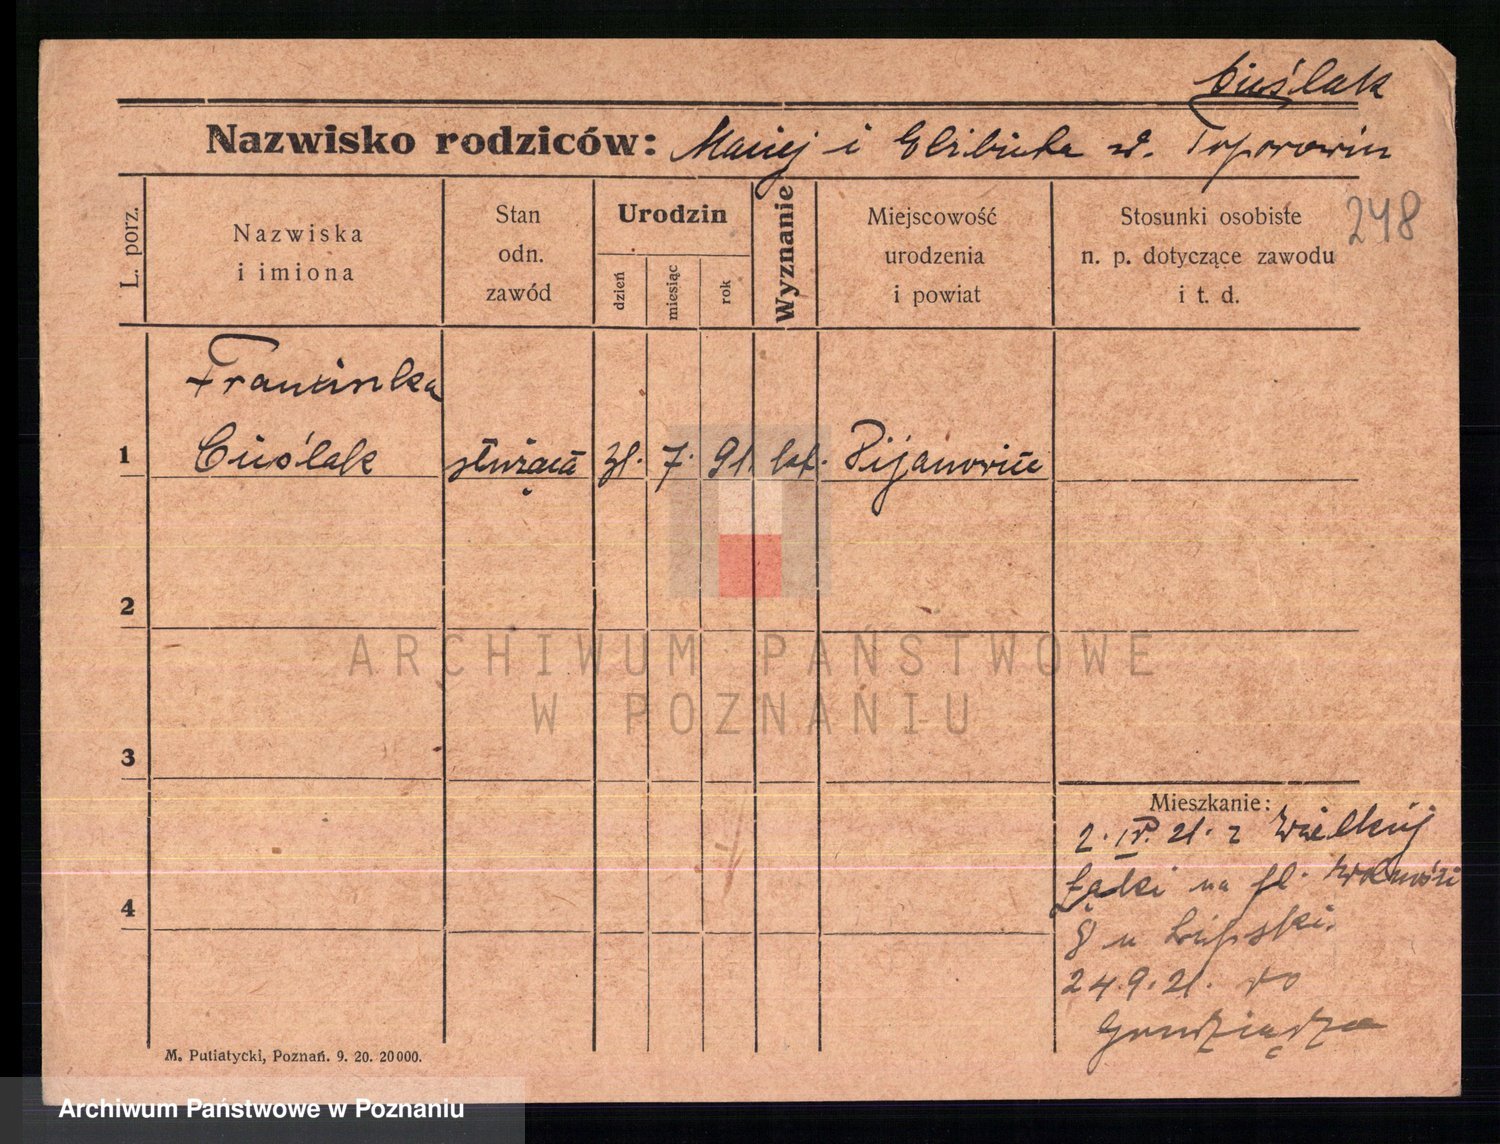 Cieślak
Nazwisko rodziców: Maciej i Elżbieta zd.
248
L. porz.
Nazwiska
i imiona
Stan
odn.
zawód
Urodzin
dzień
miesiąc
rok
Wyznanie
Miejscowość
urodzenia
i powiat
Stosunki osobiste
n. p. dotyczące zawodu
i t. d.
Franciszka
1 Cieślak służąca 31. 7. 91. kat. Pijanowice
2
ARCHIWUM PAŃSTWOWE
W POZNANIU
3
Mieszkanie:
2. IV. 21. z Wielkiej
Łąki na pl. Wolności
4
8 u Lipski.
24.9.21. do
Grudziądza
M. Putiatycki, Poznań. 9. 20. 20000.
Archiwum Państwowe w Poznaniu